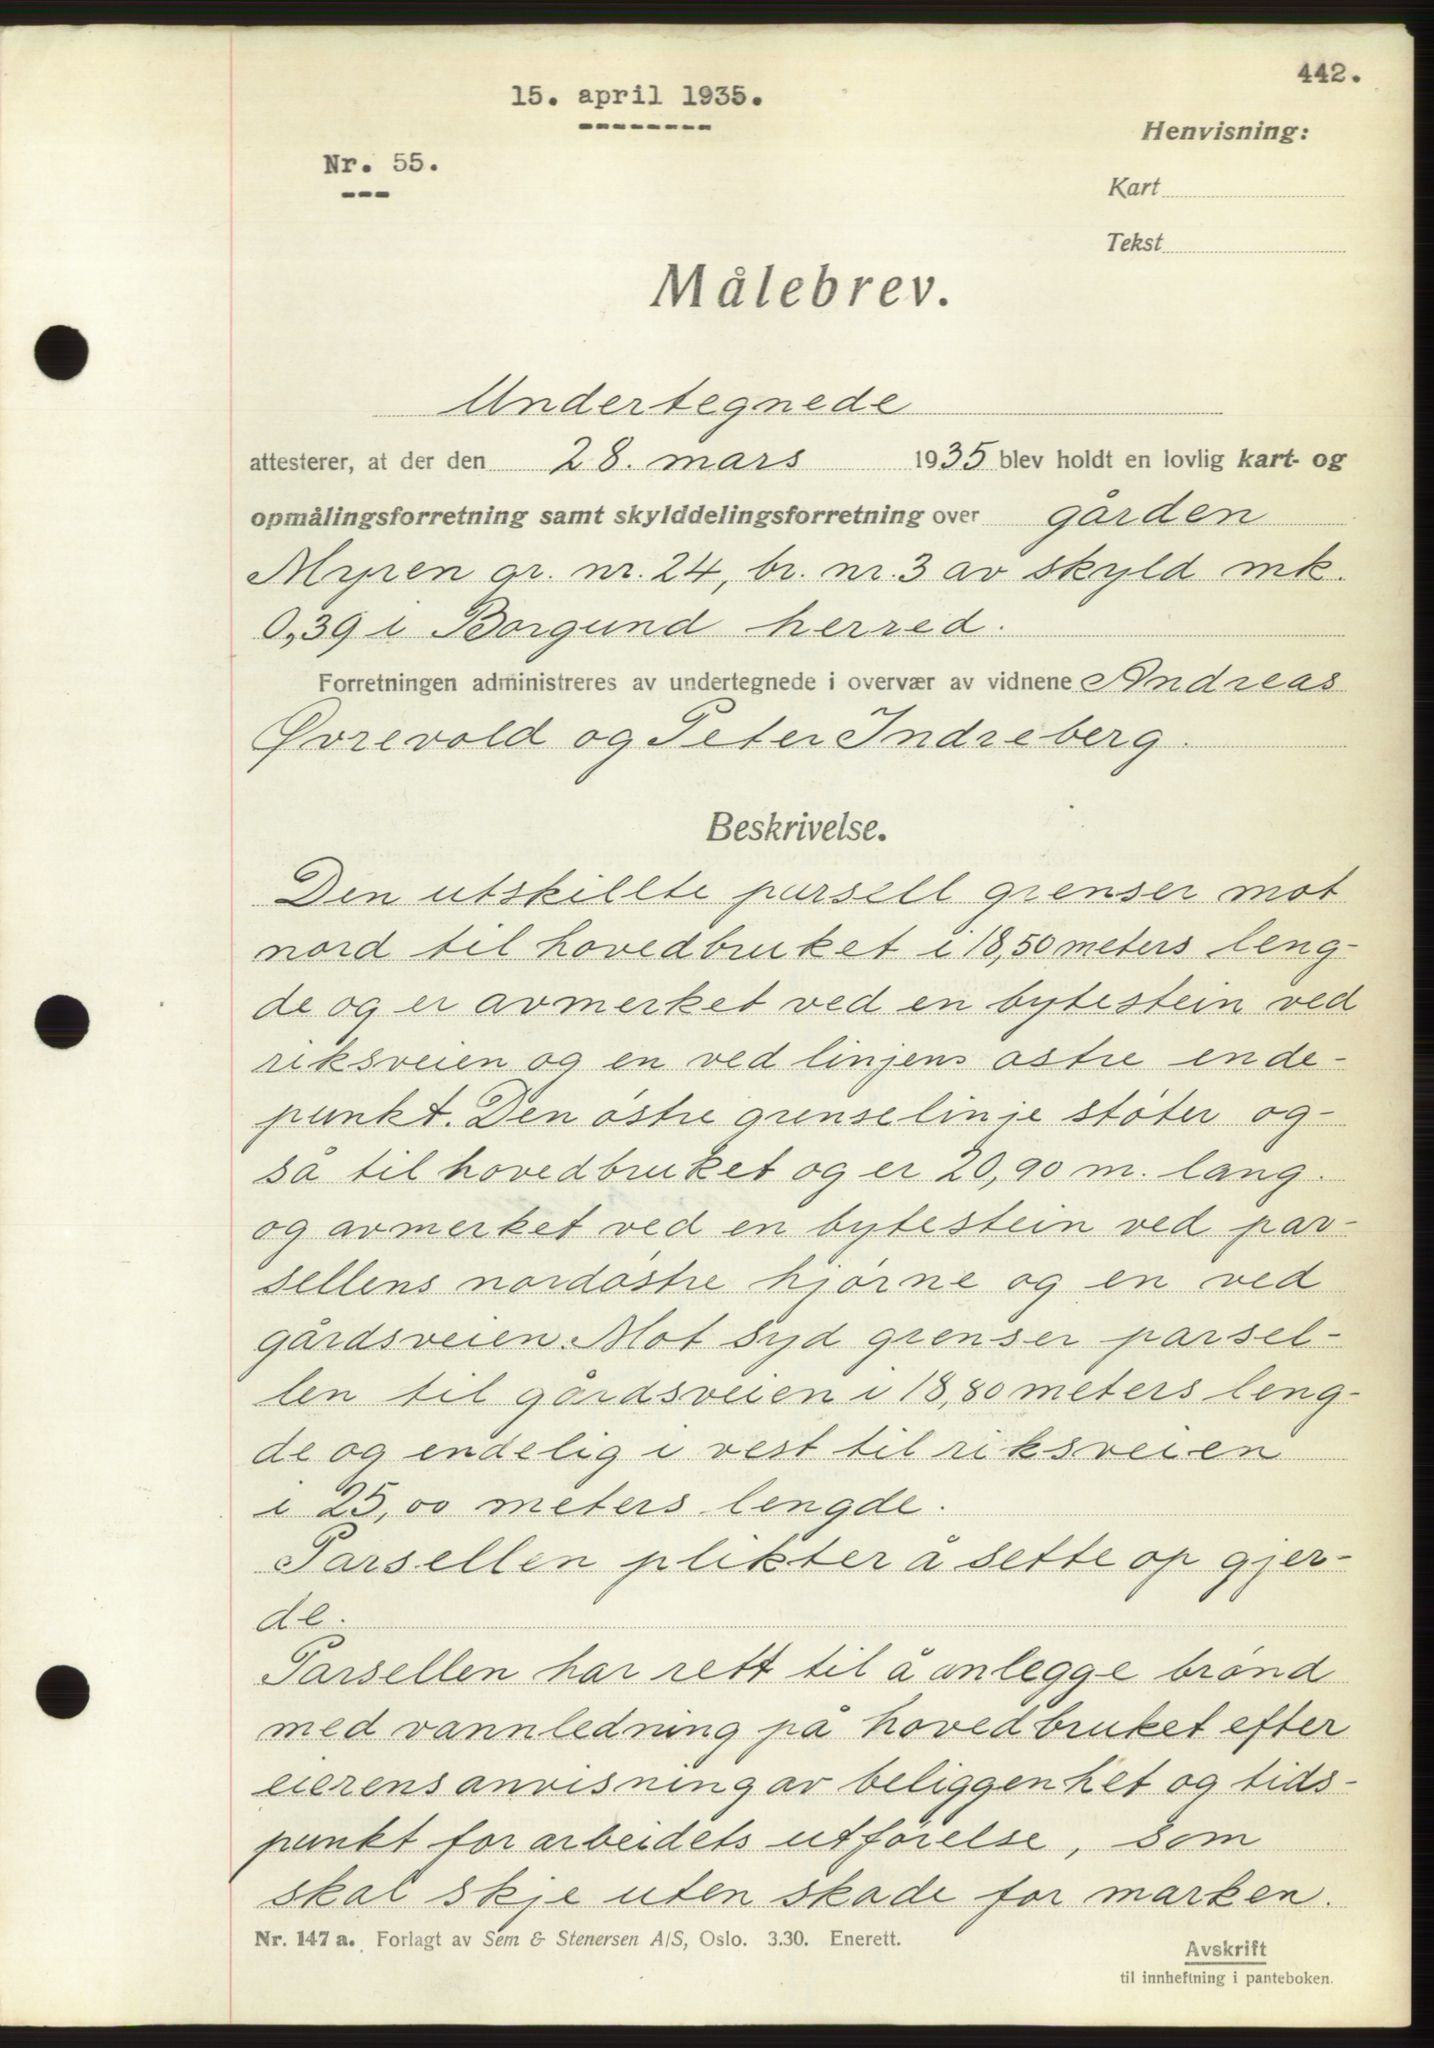 442.
15. april 1935.
Henvisning:
Nr. 55.
Kart
Tekst
Målebrev.
Undertegnede
attesterer, at der den 28. mars 1935 blev holdt en lovlig kart- og
opmålingsforretning samt skylddelingsforretning over gården
Myren gr. nr. 24, br. nr. 3 av skyld mk.
0,39 i Borgund herred.
Forretningen administreres av undertegnede i overvær av vidnene Andreas
Øvrevold og Peter Indreberg.
Beskrivelse.
Den utskillte parsell grenser mot
nord til hovedbruket i 18,50 meters leng-
de og er avmerket ved en bytestein ved
riksveien og en ved linjens østre ende-
punkt. Den østre grenselinje støter og-
så til hovedbruket og er 20,90 m. lang.
og avmerket ved en bytestein ved par-
sellens nordøstre hjørne og en ved
gårdsveien. Mot syd grenser parsel-
len til gårdsveien i 18,80 meters leng-
de og endelig i vest til riksveien
i 25,00 meters lengde.
Parsellen plikter å sette op gjer-
de.
Parsellen har rett til å anlegge brønd
med vannledning på hovedbruket efter
eierens anvisning av beliggenhet og tids-
punkt for arbeidets utførelse, som
skal skje uten skade for marken.
Nr. 147 a. Forlagt av Sem & Stenersen A/S, Oslo. 3.30. Enerett.
Avskrift
til innheftning i panteboken.